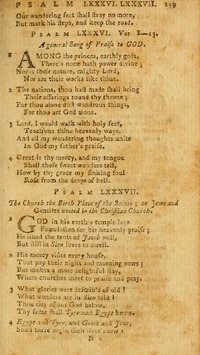 PSALM LXXXVI. LXXXVII. 159
Our wandering feet shall stray no more,
But mark thy steps, and keep the road.
PSALM LXXXVI. Ver 8—13.
A general Song of Praise to GOD.
AMONG the princes, earthly gods,
There's none hath power divine;
Nor is their nature, mighty Lord,
Nor are their works like thine.
2 The nations, thou hast made shall bring
Their offerings round thy throne;
For thou alone dost wondrous things,
For thou art God alone.
3 Lord, I would walk with holy feet,
Teach me thine heavenly ways,
And all my wandering thoughts unite
In God my father's praise.
4 Great is thy mercy, and my tongue
Shall those sweet wonders tell,
How by thy grace my sinking soul
Rose from the deeps of hell.
PSALM LXXXVII.
The Church the Birth Place of the Saints; or Jews and
Gentiles united in the Christian Church.
GOD in his earthly temple lays
Foundation for his heavenly praise;
He likes the tents of Jacob well,
But still in Sion loves to dwell.
2 His mercy visits every house,
That pay their night and morning vows;
But makes a more delightful stay,
Where churches meet to praise and pray.
3 What glories were describ'd of old!
What wonders are in Sion told!
Thou city of our God below,
Thy fame shall Tyre and Egypt know.
4 Egypt and Tyre, and Greek and Jew,
Shall there begin their lives anew:
N